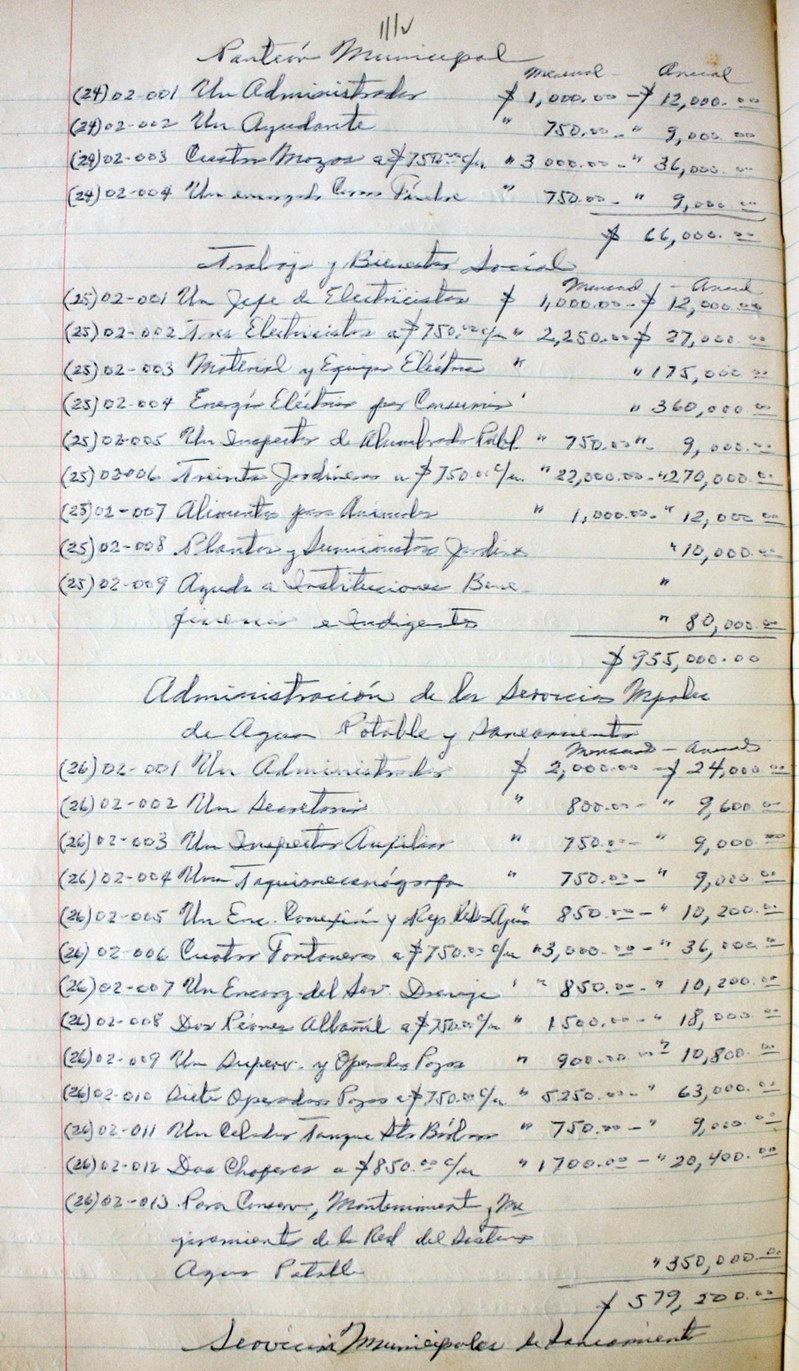 Panteón Municipal
Mensual - Anual
(24) 02-001 Un Administrador $ 1,000.00 - $ 12,000.00
(24) 02-002 Un Ayudante " 750.00 - " 9,000.00
(24) 02-003 Cuatro Mozos a $750.00 c/u " 3 000.00 - " 36,000.00
(24) 02-004 Un encargado Carro Fúnebre " 750.00 - " 9,000.00
$ 66,000.00
Trabajo y Bienestar Social
Mensual - Anual
(25) 02-001 Un Jefe de Electricistas $ 1,000.00 - $ 12,000.00
(25) 02-002 Tres Electricistas a $750.00 c/u " 2,250.00 $ 27,000.00
(25) 02-003 Material y Equipo Eléctrico " " 175,000.00
(25) 02-004 Energía Eléctrica por Consumir " " 360,000.00
(25) 02-005 Un Inspector de Alumbrado Públ " 750.00 " 9,000.00
(25) 02-006 Treinta Jardineros a $750.00 c/u " 22,000.00 - " 270,000.00
(25) 02-007 Alimentos para Animales " 1,000.00 - " 12,000.00
(25) 02-008 Plantas y Suministros Jardines " 10,000.00
(25) 02-009 Ayuda a Instituciones Bene- "
ficencia e Indigentes " 80,000.00
$ 955,000.00
Administración de los Servicios Mpales
de Agua Potable y Saneamiento
Mensual - Anual
(26) 02-001 Un Administrador $ 2,000.00 - $ 24,000.00
(26) 02-002 Un Secretario " 800.00 - " 9,600.00
(26) 02-003 Un Inspector Auxiliar " 750.00 - " 9,000.00
(26) 02-004 Una Taquimecanógrafa " 750.00 - " 9,000.00
(26) 02-005 Un Enc. Conexión y Rep. Agua " 850.00 - " 10,200.00
(26) 02-006 Cuatro Fontaneros a $750.00 c/u " 3,000.00 - " 36,000.00
(26) 02-007 Un Encarg. del Ser. Drenaje " 850.00 - " 10,200.00
(26) 02-008 Dos Peones Albañil a $750.00 c/u " 1500.00 - " 18,000.00
(26) 02-009 Un Superv. y Operador Pozos " 900.00 " 10,800.00
(26) 02-010 Siete Operadores Pozos a $750.00 c/u " 5250.00 - " 63,000.00
(26) 02-011 Un Celador Tanque Sta Bárbara " 750.00 - " 9,000.00
(26) 02-012 Dos Choferes a $850.00 c/u " 1700.00 - " 20,400.00
(26) 02-013 Para Conserv., Mantenimiento y Me
joramiento de la Red del Sistema
Agua Potable " 350,000.00
$ 579,200.00
Servicios Municipales de Saneamiento